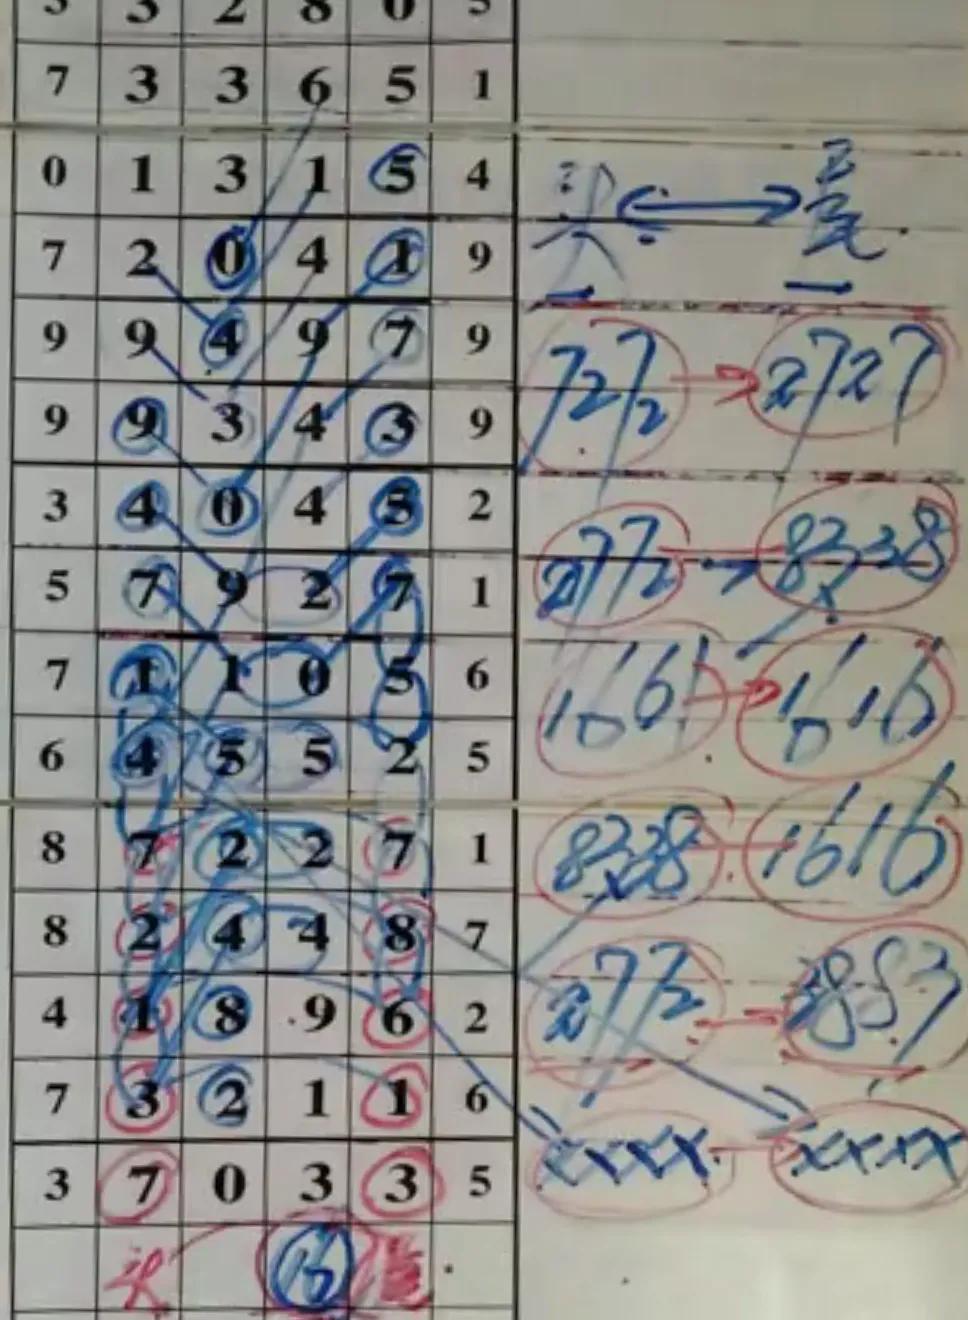 5 3 2 8 0 5
7 3 3 6 5 1
0 1 3 1 5 4
头
7 2 0 4 1 9
9 9 4 9 7 9
7272 2727
9 9 3 4 3 9
3 4 0 4 5 2
2772 8338
5 7 9 2 7 1
7 1 1 0 5 6
1661 1616
6 4 5 5 2 5
8 7 2 2 7 1
8338 1616
8 2 4 4 8 7
4 1 8 9 6 2
272 3883
7 3 2 1 1 6
xxxx xxxx
3 7 0 3 3 5
头 16